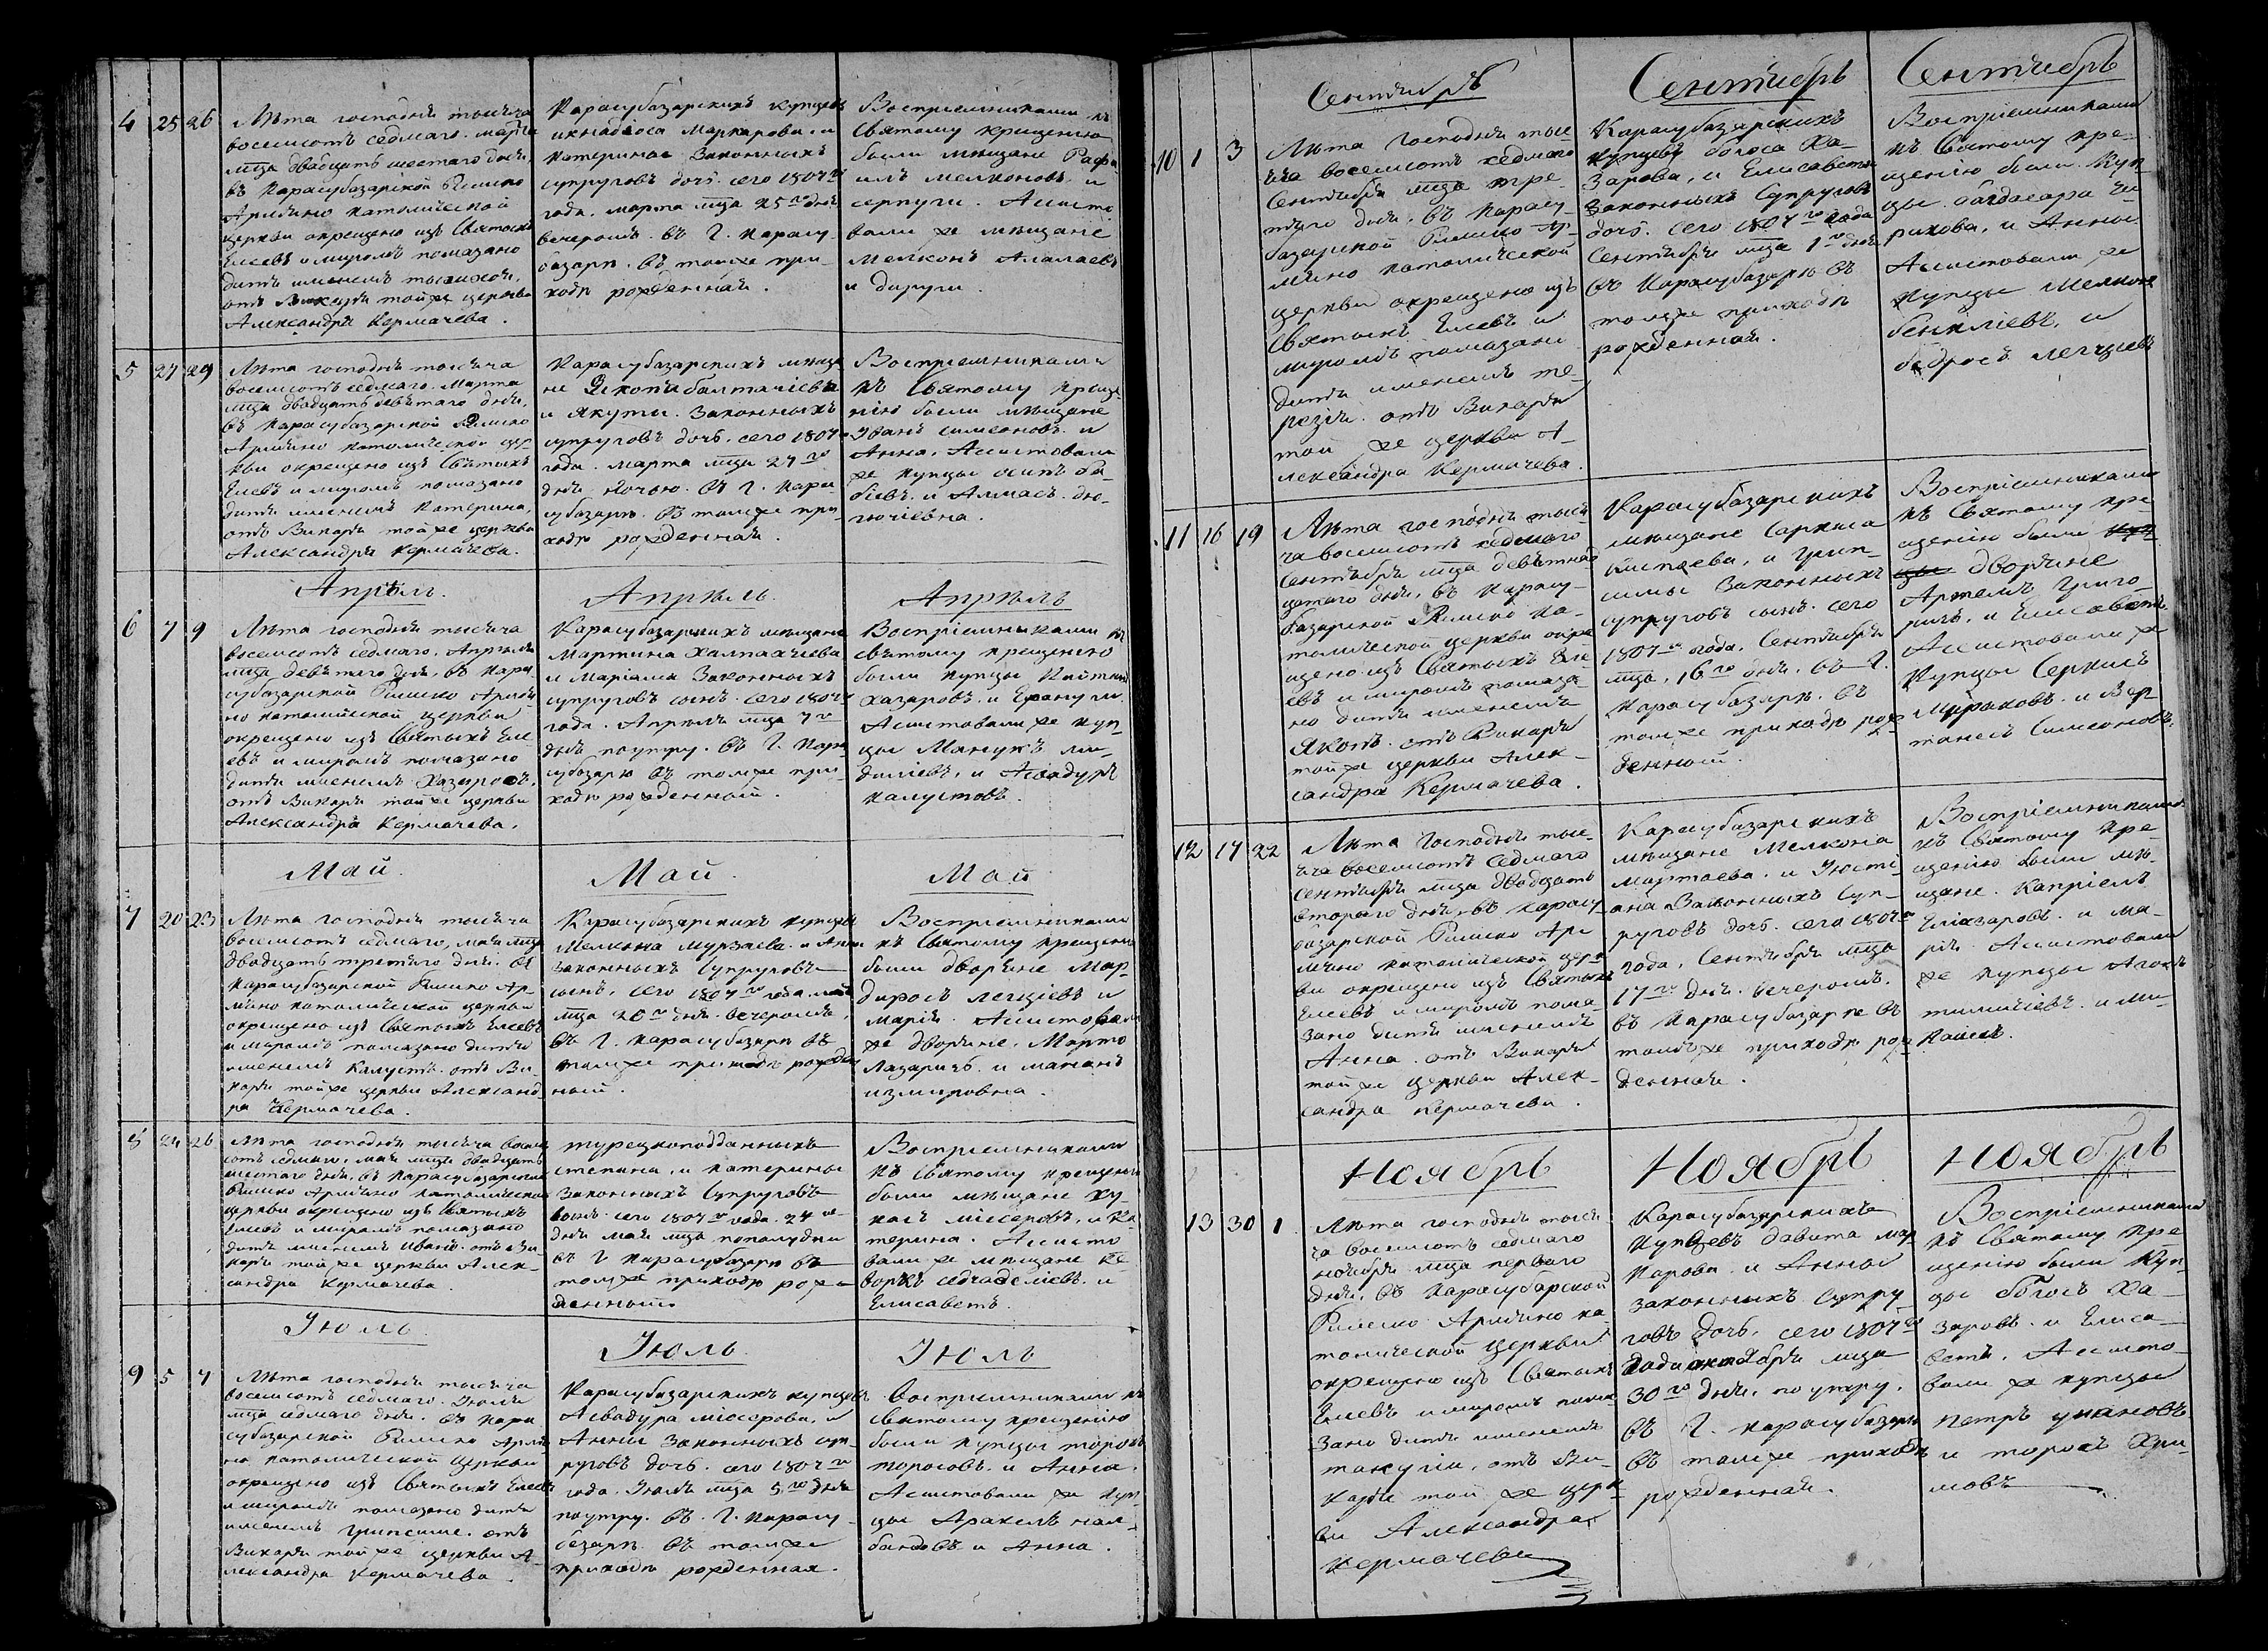 4 25 26
Лѣта господня тысяча
восемсотъ седмаго. марта
мца двадцать шестаго дня.
въ Карасубазарской Римско
Армяно католической
церкви окрещено изъ Святыхъ
Елеевъ и миромъ помазано
дитя именемъ
отъ Викарiя тойже церкви
Александра Кермачева.
Карасубазарскихъ купцовъ
Маркарова. и
Катерины Законныхъ
супруговъ дочь. сего 1807го
года. марта мца 25го дня
вечеромъ. въ Г. Карасу-
базарѣ. въ томже при-
ходѣ рожденная.
Воспрiемниками къ
Святому крещенiю
были мѣщане Рафа
илъ мелконовъ. и
серпуги. Асисто-
вали же мѣщане
Мелконъ Аламаевъ
и дируги.
5 27 29
Лѣта господня тысяча
восемсотъ седмаго. Марта
мца двадцать девѣтаго дня,
въ Карасубазарской Римско
Армяно католической цер-
кви окрещено изъ Святыхъ
Елеевъ и миромъ помазано
дитя именемъ Катерина,
отъ Викарiя тойже церкви
Александра Кермачева.
Карасубазарскихъ мѣща
не Якопа балтачiева
и Якути. Законныхъ
супруговъ дочь. сего 1807го
года. марта мца 27го
дня ночью. въ Г. Кара-
субазарѣ. въ томже при-
ходѣ рожденная.
Воспрiемниками
къ Святому креще-
нiю были мѣщане
Iванъ симеоновъ. и
Анна, Асистовали
же купцы осипъ ба-
бiевъ. и Алмасъ. дю-
гючiевна.
Апрѣль.
Апрѣль.
Апрѣль
6 7 9
Лѣта господня тысяча
восемсотъ седмаго. Апрѣля
мца девѣтаго дня, въ Кара
субазарской Римско Армя-
но католической церкви
окрещено изъ Святыхъ Еле-
евъ и миромъ помазано
дитя именемъ Хазаросъ,
отъ Викарiя тойже церкви
Александра Кермачева.
Карасубазарскихъ мѣщане
Мартина Халпахчiева
и Марiама Законныхъ
супруговъ сынъ. сего 1807го
года. Апрѣль мца 7го
дня поутру. въ Г. Кара
субазарѣ въ томже при-
ходѣ рожденный.
Воспрiемниками къ
святому крещенiю
были купцы
хазаровъ. и
Асистовали же куп-
цы Манукъ ми-
дилiевъ, и Асвадуръ
калустовъ.
Май.
Май.
Май
7 20 23
Лѣта господня тысяча
восемсотъ седмаго, мая мца
двадцать третьяго дня. въ
Карасубазарской Римско Ар-
мяно католической церкви
окрещено изъ Святыхъ Елеевъ
и миромъ помазано дитя
именемъ Калустъ. отъ Ви-
карiя тойже церкви Александ-
ра Кермачева.
Карасубазарскихъ купцовъ
Мелкона Мурзаева. и Анны
законныхъ супруговъ
сынъ. сего 1807го года. мая
мца 20го дня. вечеромъ.
въ Г. Карасубазарѣ въ
томже приходѣ рожден
ный.
Воспрiемниками
къ Святому крещенiю
были дворяне Мар-
диросъ легцiевъ и
Марiя. Асистовали
же дворяне, Марто
Лазаричъ. и мананъ
измировна.
8 24 26
Лѣта господня тысяча восем
сотъ седмаго, мая мца двадцать
шестаго дня, въ Карасубазарской
Римско Армяно католической
церкви окрещено изъ Святыхъ
Елеевъ и миромъ помазано
дитя именемъ Иванъ. отъ Ви-
карiя тойже церкви Алек-
сандра Кермачева.
турецкоподданныхъ
степана, и катерины
законныхъ Супруговъ
сынъ. сего 1807го года. 24го
дня мая мца пополудни
въ Г Карасубазарѣ въ
томже приходѣ рож-
денный.
Воспрiемниками
къ Святому крещенiю
были мѣщане Ху-
касъ мiсеровъ, и Ка-
терина. Асисто
вали же мѣщане Ке-
воркъ и
Елисаветъ.
Iюль.
Iюль.
Iюль
9 5 7
Лѣта господня тысяча
восемсотъ седмаго. Iюля
мца седмаго дня. въ Кара
субазарской Римско Армя-
но католической церкви
окрещено изъ Святыхъ Елеевъ
и миромъ помазано дитя
именемъ Грипсиме. отъ
Викарiя тойже церкви А-
лександра Кермачева.
Карасубазарскихъ купцовъ
Асвадура мiосерова. и
Анны законныхъ суп-
руговъ дочь. сего 1807го
года. Iюля мца 5го дня
поутру. въ. Г. Карасу-
базарѣ. въ томже
приходѣ рожденная.
Воспрiемниками къ
святому крещенiю
были купцы торосъ
торосовъ. и Анна.
Асистовали же куп-
цы Аракелъ нал-
бандовъ и Анна.
Сентябрь
Сентябрь
Сентябрь
10 1 3
Лѣта Господня тыс-
яча восемсотъ седмаго
Сентября мца тре-
тяго дня. въ Карасу-
базарской Римско Ар-
мяно католической
церкви окрещено изъ
Святыхъ Елеевъ и
миромъ помазано
дитя именемъ те-
резiя. отъ Викарiя
той же церкви А-
лександра Кермачева.
Карасубазарскихъ
купцовъ богоса Ха-
зарова, и Елисаветы
Законныхъ Супруговъ
дочь. сего 1807го года
Сентября мца 1го дня
въ Карасубазарѣ въ
томже приходѣ
рожденная.
Воспрiемниками
къ Святому кре-
щенiю были. Куп-
цы. багдасара Ши-
рикова, и Анны
Асистовали же
купцы Мелконъ
бенклiевъ, и
бедросъ легцiевъ
11 16 19
Лѣта господня тыся-
ча восемсотъ седмаго
Сентября мца девѣтнад-
цатаго дня, въ Карасу-
базарской Римско ка-
толической церкви окре
щено изъ Святыхъ Еле
евъ и миромъ помаза-
но дитя именемъ
Якопъ. отъ Викарiя
тойже церкви Алек-
сандра Кермачева.
Карасубазарскихъ
мѣщане Саркиса
Киспаева, и Грип-
симы Законныхъ
супруговъ сынъ. сего
1807го года, Сентября
мца, 16го дня. въ Г.
Карасубазарѣ. въ
томже приходѣ рож-
денный.
Воспрiемниками
къ Святому кре-
щенiю были куп-
цы дворяне
Артемъ Григо-
ричъ, и Елисаветъ.
Асистовали же
купцы Серкисъ
Мiраковъ. и Вар-
танесъ Симеоновъ.
12 17 22
Лѣта Господня тыс-
яча восемсотъ седмаго
Сентября мца двадцать
втораго дня, въ Карасу-
базарской Римско Ар-
мяно католической церк
ви окрещено изъ Святыхъ
Елеевъ и миромъ пома-
зано дитя именемъ
Анна. отъ Викарiя
тойже церкви Алек-
сандра Кермачева.
Карасубазарскихъ
мѣщане Мелкона
Мартаева. и Iюсти-
ана Законныхъ Суп-
руговъ дочь. сего 1807го
года, Сентября мца
17го дня. вечеромъ.
въ Карасубазарѣ въ
томъже приходѣ рож-
денная.
Воспрiемниками
къ Святому кре-
щенiю были мѣ-
щане. Каприелъ
Елiазаровъ. и Ма-
рiя. Асистовали
же купцы
и Ми-
Ноябрь
Ноябрь
Ноябрь
13 30 1
Лѣта господня тыся-
ча восемсотъ седмаго
ноября мца перваго
дня, въ Карасубарской
Римско Армяно ка-
толической церкви
окрещено изъ Святыхъ
Елеевъ и миромъ пома-
зано дитя именемъ
такугiи, отъ Ви-
карiя той же церк-
ви Александра
Кермачева
Карасубазарскихъ
Купцовъ давита мар-
карова и Анны
законныхъ Супру-
говъ дочь. сего 1807го
года октября мца
30го дня. по утру.
въ Г. Карасубазарѣ
въ томже приходѣ
рожденная.
Воспрiемниками
къ Святому кре-
щенiю были Куп-
цы богосъ Ха-
заровъ. и Елиса-
ветъ. Асисто-
вали же купцы
петръ унановъ
и торосъ Хри-
мовъ